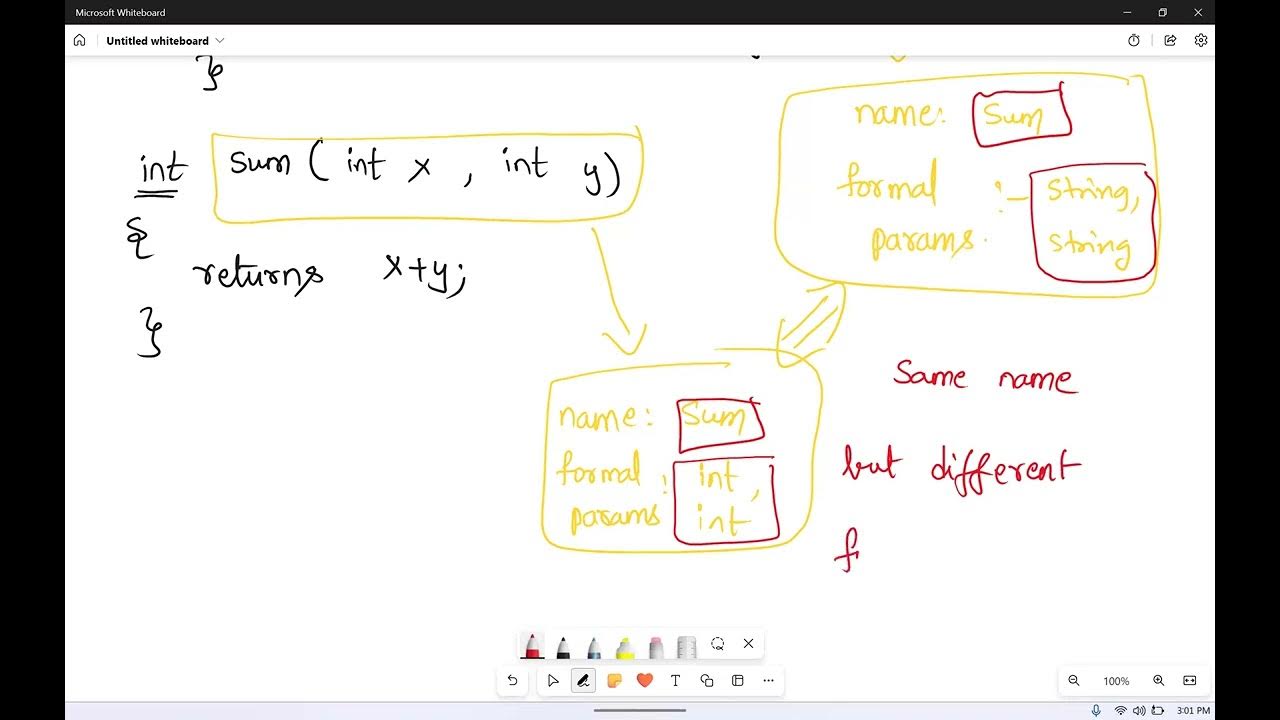 Microsoft Whiteboard
Untitled whiteboard
}
int Sum ( int x , int y)
{
returns x+y;
}
name: Sum
formal :- String,
params. String
name: Sum
formal : int ,
params int
Same name
but different
f
100%
3:01 PM